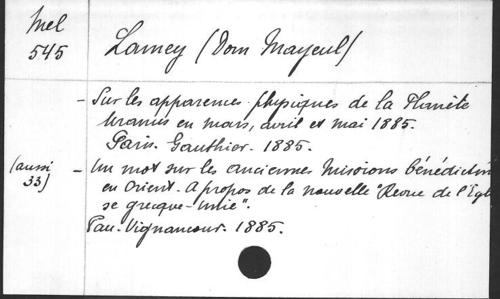 Mel
545
Lamey (Dom Mayeul)
- Sur les apparences physiques de la Planète
Uranus en mars, avril et mai 1885.
Paris. Gauthier. 1885.
(aussi
33)
- Un mot sur les anciennes missions bénédictin
en Orient. A propos de la nouvelle "Revue de l'Egl
se grecque-unie".
Pau. Vignancour. 1885.